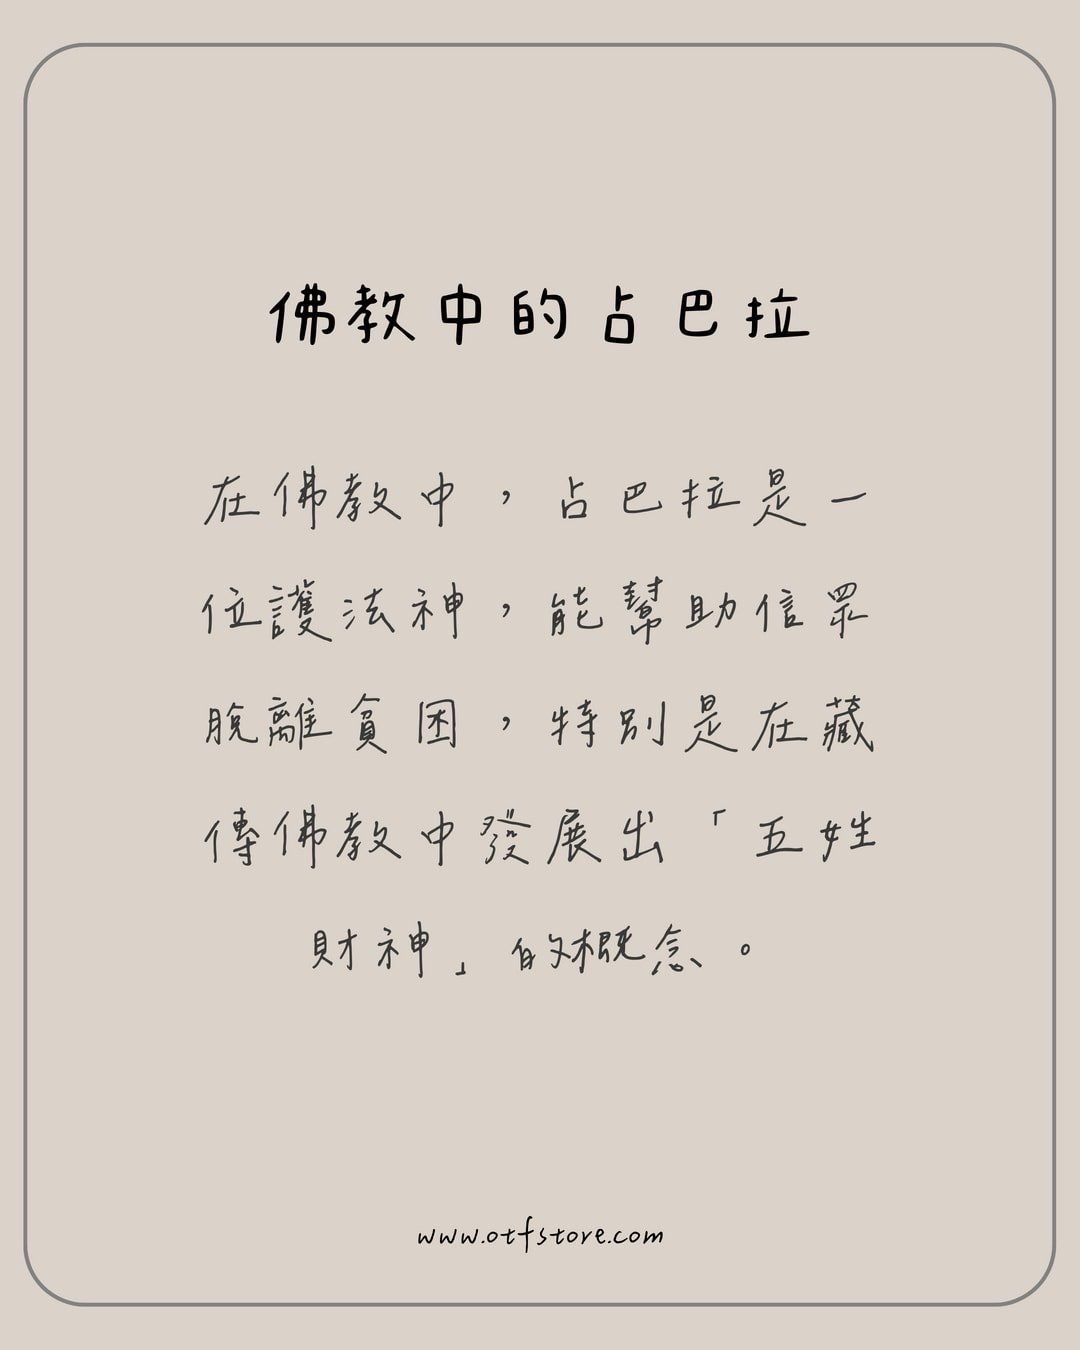 佛教中的占巴拉
在佛教中，占巴拉是一
位護法神，能幫助信眾
脫離貧困，特別是在藏
傳佛教中發展出「五姓
財神」的概念。
www.otfstore.com